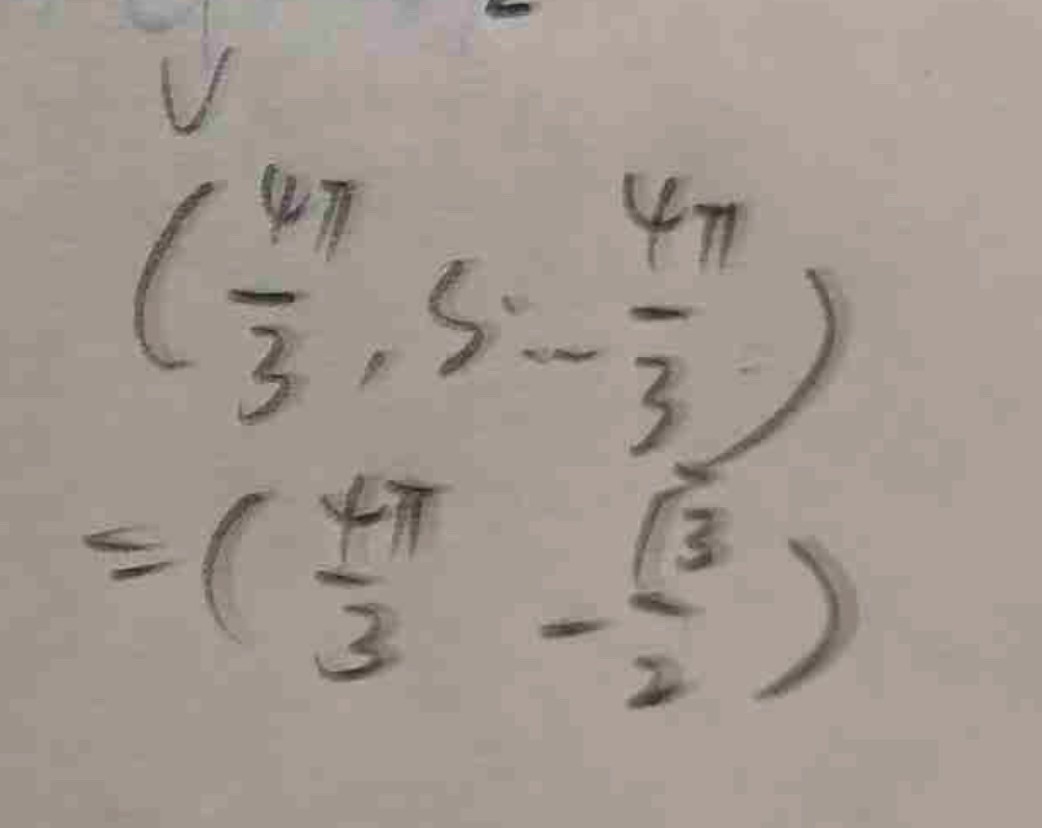 (4π/3, sin 4π/3)
= (4π/3 -√3/2)